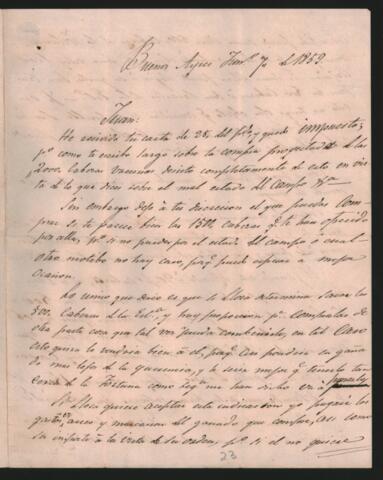 Buenos Ayres Jun.º 7 de 1859
Juan:
He recivido tu carta de 28 del p.do y quedo impuesto;
p.º como te escribo largo sobre la compra de las
2000 cabezas vacunas desisto completamente de esto en vis
ta de lo que dices sobre el mal estado del campo
Sin embargo dejo a tu discrecion el que puedas Com
prar si te parece bien las 1500 cabezas q.e te han ofrecido
por alla, p.º si no puede por el estado del campo o cual
otro motivo no hay caso, porq.e puede esperar a mejor
ocasion.
Lo unico que deseo es que si Llosa determina sacar las
500 Cabezas de la Est.a y hay proporcion p.a comprarlas de
otra parte cosa que tal vez pueda combenirle, en tal Caso
esto quiza le vendria bien a el, porq.e asi pondria su
mas lejos de la querencia, y le seria mejor q.e tenerlo tan
cerca de la
Si Llosa quiere aceptar esta indicacion yo pagaré los
gastos, arreo y marcacion del ganado que compre, asi como
su importe a la vista de su orden, p.º si el no quiere
23